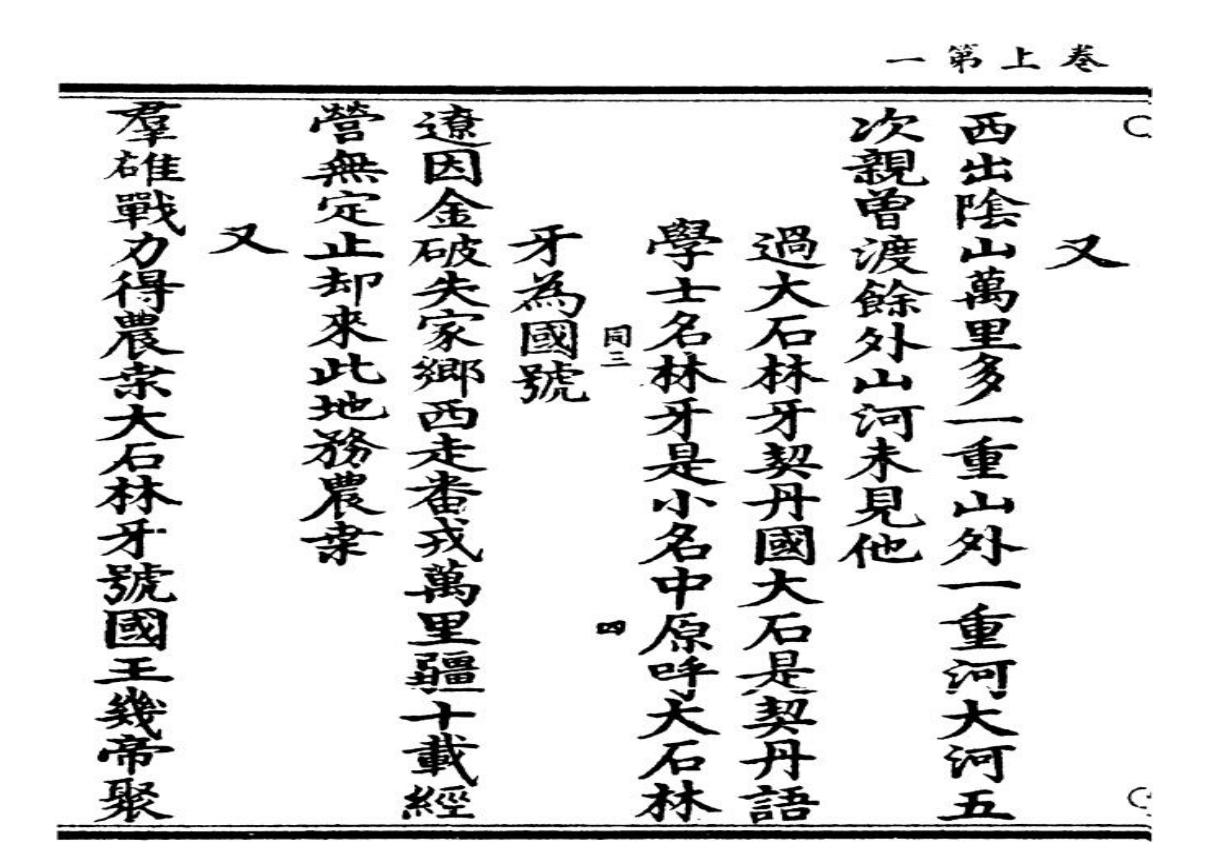 卷上第一
又
西出陰山萬里多一重山外一重河大河五
次親曾渡餘外山河未見他
過大石林牙契丹國大石是契丹語
學士名林牙是小名中原呼大石林
同三
四
牙為國號
遼因金破失家鄉西走番戎萬里疆十載經
營無定止却來此地務農桒
又
羣雄戰力得農桒大石林牙號國王幾帝聚